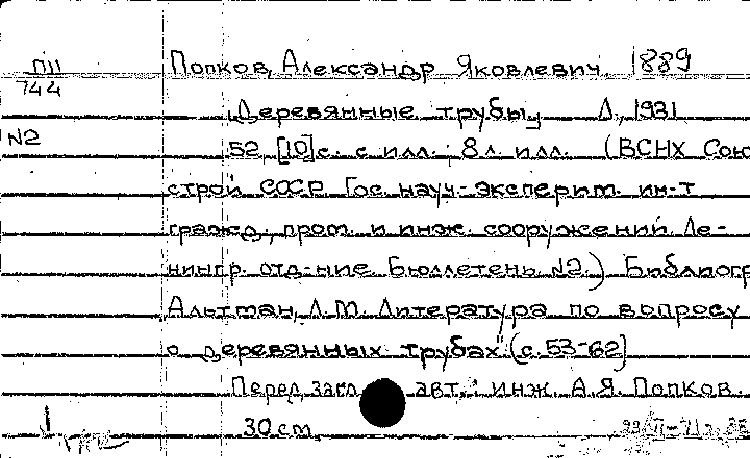 П11
744
Попков, Александр Яковлевич 1889
Деревянные трубы Л., 1931
N2
52, [10] с. с илл.; 8 л. илл. (ВСНХ Союз
строй СССР Гос. науч.-эксперим. ин-т
гражд., пром. и инж. сооружений Ле-
нингр. отд-ние. Бюллетень N2.) Библиогр
Альтман, Л.М. Литература по вопросу
о деревянных трубах" (с. 53-62]
Перед загл. авт.: инж. А.Я. Попков.
30 см